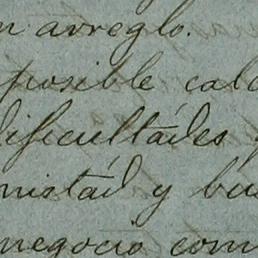 n arreglo.
posible calc
dificultádes y
mistád y bu
negocio com